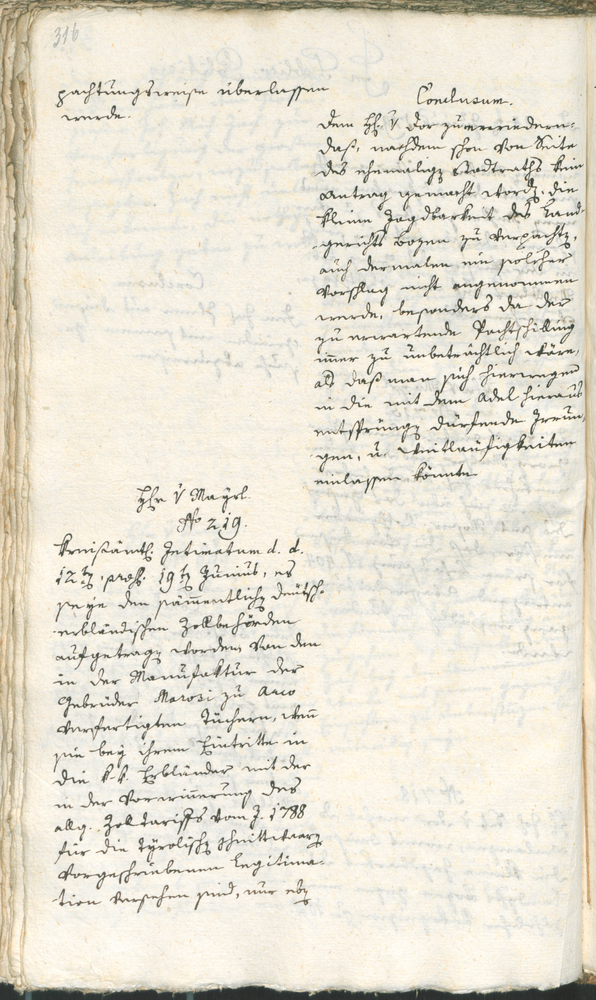 316
pachtungsweise überlassen
werde.
Conclusum.
dem H. v Dor zu erwiedern:
daß, nachdem schon von Seite
des ehemaligen Stadtraths kein
Antrag gemacht worden, die
kleine Jagdbarkeit des Land-
gerichts Bozen zu verpachten,
auch dermalen ein solcher
Vorschlag nicht angenommen
werde, besonders da der
zu erwartende Pachtschilling
immer zu unbeträchtlich wäre,
als daß man sich hierwegen
in die mit dem Adel hieraus
entspringen dürfende Irrun-
gen, u. Weitläufigkeiten
einlassen könnte
H v Mayrl
No 219.
Kreisämtl. Intimatum d. d.
12ten, präs. 19ten Junius, es
seye den sämmentlichen deutsch-
erbländischen Zollbehörden
aufgetragen worden von den
in der Manufaktur der
Gebrüder Marosi zu Arco
verfertigten Tüchern, wenn
sie bey ihrem Eintritte in
die k. k. Erbländer mit der
in der Vorerinnerung des
allg. Zolltariffs vom J. 1788
für die Tyrolischen Schnittwaaren
vorgeschriebenen Legitima-
tion versehen sind, nur eben